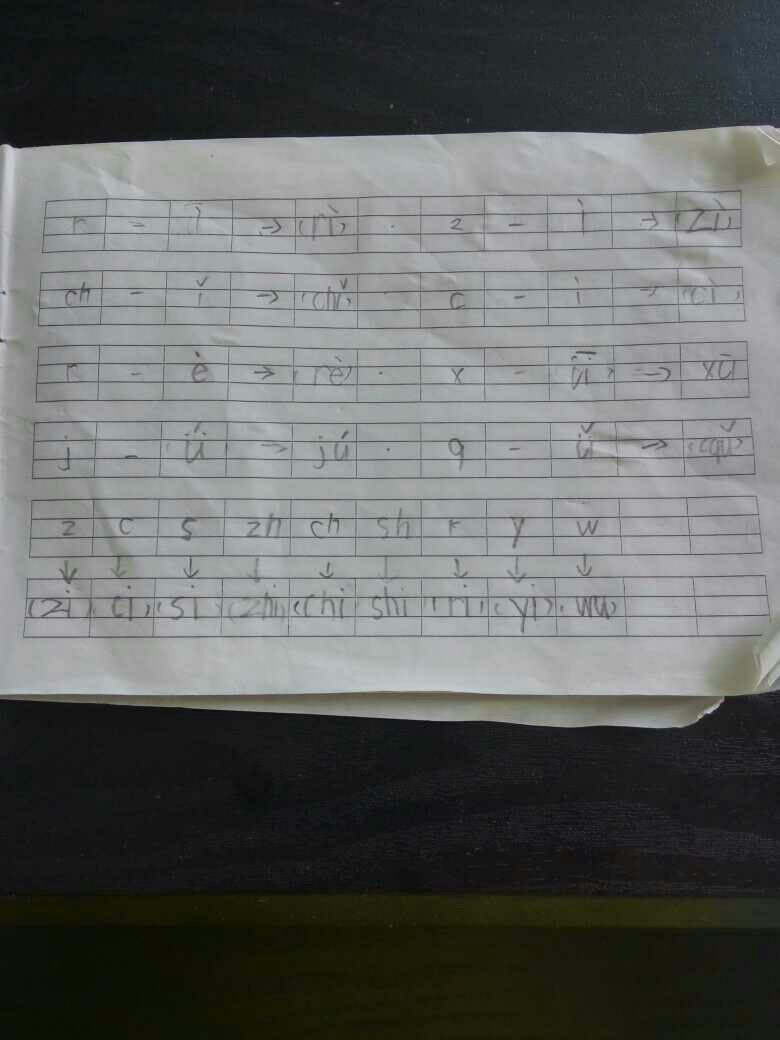 r - ì → (rì) · z - ì → (zì)
ch - ǐ → (chǐ) · c - ì → (cì)
r - è → (rè) · x - (ǖ) → xū
j - (ǘ) → jú · q - ǚ → (qǔ)
z c s zh ch sh r y w
↓ ↓ ↓ ↓ ↓ ↓ ↓ ↓ ↓
(zi) (ci) (si) (zhi) (chi shi (ri) (yi) (wu)